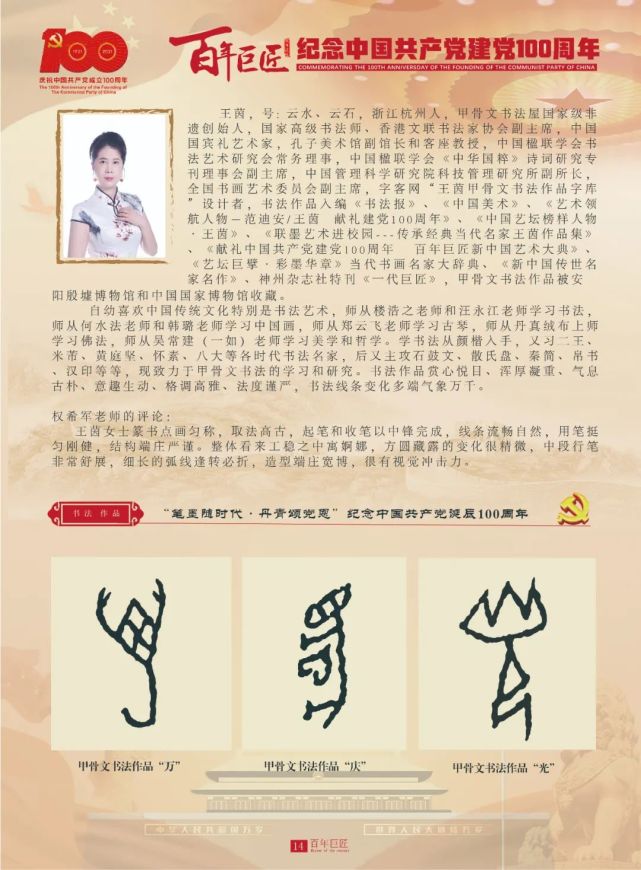 100
1921 2021
庆祝中国共产党成立100周年
The 100th Anniversary of the Founding of
The Communist Party of China
百年巨匠
纪念中国共产党建党100周年
COMMEMORATING THE 100TH ANNIVERSARY OF THE FOUNDING OF THE COMMUNIST PARTY OF CHINA
王茵，号：云水、云石，浙江杭州人，甲骨文书法屋国家级非
遗创始人，国家高级书法师、香港文联书法家协会副主席，中国
国宾礼艺术家，孔子美术馆副馆长和客座教授，中国楹联学会书
法艺术研究会常务理事，中国楹联学会《中华国粹》诗词研究专
刊理事会副主席，中国管理科学研究院科技管理研究所副所长，
全国书画艺术委员会副主席，字客网“王茵甲骨文书法作品字库
”设计者，书法作品入编《书法报》、《中国美术》、《艺术领
航人物－范迪安/王茵 献礼建党100周年》、《中国艺坛榜样人物
·王茵》、《联墨艺术进校园---传承经典当代名家王茵作品集》
、《献礼中国共产党建党100周年 百年巨匠新中国艺术大典》、
《艺坛巨擘·彩墨华章》当代书画名家大辞典、《新中国传世名
家名作》、神州杂志社特刊《一代巨匠》，甲骨文书法作品被安
阳殷墟博物馆和中国国家博物馆收藏。
自幼喜欢中国传统文化特别是书法艺术，师从楼浩之老师和汪永江老师学习书法，
师从何水法老师和韩璐老师学习中国画，师从郑云飞老师学习古琴，师从丹真绒布上师
学习佛法，师从吴常建（一如）老师学习美学和哲学。学书法从颜楷入手，又习二王、
米芾、黄庭坚、怀素、八大等各时代书法名家，后又主攻石鼓文、散氏盘、秦简、帛书
、汉印等等，现致力于甲骨文书法的学习和研究。书法作品赏心悦目、浑厚凝重、气息
古朴、意趣生动、格调高雅、法度谨严，书法线条变化多端气象万千。
权希军老师的评论：
王茵女士篆书点画匀称，取法高古，起笔和收笔以中锋完成，线条流畅自然，用笔挺
匀刚健，结构端庄严谨。整体看来工稳之中寓婀娜，方圆藏露的变化很精微，中段行笔
非常舒展，细长的弧线逢转必折，造型端庄宽博，很有视觉冲击力。
书法 作品
“笔墨随时代·丹青颂党恩”纪念中国共产党诞辰100周年
甲骨文书法作品“万”
甲骨文书法作品“庆”
甲骨文书法作品“光”
中华人民共和国万岁
世界人民大团结万岁
14 百年巨匠